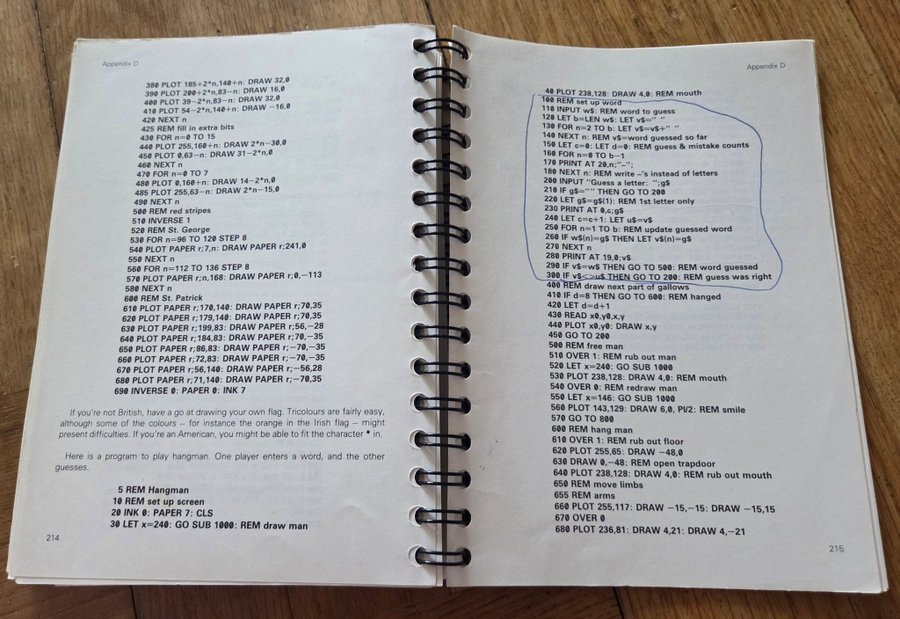 Appendix D
380 PLOT 185+2*n,140+n: DRAW 32,0
390 PLOT 200+2*n,83-n: DRAW 16,0
400 PLOT 39-2*n,83-n: DRAW 32,0
410 PLOT 54-2*n,140+n: DRAW -16,0
420 NEXT n
425 REM fill in extra bits
430 FOR n=0 TO 15
440 PLOT 255,160+n: DRAW 2*n-30,0
450 PLOT 0,63-n: DRAW 31-2*n,0
460 NEXT n
470 FOR n=0 TO 7
480 PLOT 0,160+n: DRAW 14-2*n,0
485 PLOT 255,63-n: DRAW 2*n-15,0
490 NEXT n
500 REM red stripes
510 INVERSE 1
520 REM St. George
530 FOR n=96 TO 120 STEP 8
540 PLOT PAPER r;7,n: DRAW PAPER r;241,0
550 NEXT n
560 FOR n=112 TO 136 STEP 8
570 PLOT PAPER r;n,168: DRAW PAPER r;0,-113
580 NEXT n
600 REM St. Patrick
610 PLOT PAPER r;170,140: DRAW PAPER r;70,35
620 PLOT PAPER r;179,140: DRAW PAPER r;70,35
630 PLOT PAPER r;199,83: DRAW PAPER r;56,-28
640 PLOT PAPER r;184,83: DRAW PAPER r;70,-35
650 PLOT PAPER r;86,83: DRAW PAPER r;-70,-35
660 PLOT PAPER r;72,83: DRAW PAPER r;-70,-35
670 PLOT PAPER r;56,140: DRAW PAPER r;-56,28
680 PLOT PAPER r;71,140: DRAW PAPER r;-70,35
690 INVERSE 0: PAPER 0: INK 7
If you're not British, have a go at drawing your own flag. Tricolours are fairly easy,
although some of the colours – for instance the orange in the Irish flag – might
present difficulties. If you're an American, you might be able to fit the character * in.
Here is a program to play hangman. One player enters a word, and the other
guesses.
5 REM Hangman
10 REM set up screen
20 INK 0: PAPER 7: CLS
30 LET x=240: GO SUB 1000: REM draw man
214
Appendix D
40 PLOT 238,128: DRAW 4,0: REM mouth
100 REM set up word
110 INPUT w$: REM word to guess
120 LET b=LEN w$: LET v$=" "
130 FOR n=2 TO b: LET v$=v$+" "
140 NEXT n: REM v$=word guessed so far
150 LET c=0: LET d=0: REM guess & mistake counts
160 FOR n=0 TO b-1
170 PRINT AT 20,n;"-";
180 NEXT n: REM write -'s instead of letters
200 INPUT "Guess a letter: ";g$
210 IF g$="" THEN GO TO 200
220 LET g$=g$(1): REM 1st letter only
230 PRINT AT 0,c;g$
240 LET c=c+1: LET u$=v$
250 FOR n=1 TO b: REM update guessed word
260 IF w$(n)=g$ THEN LET v$(n)=g$
270 NEXT n
280 PRINT AT 19,0;v$
290 IF v$=w$ THEN GO TO 500: REM word guessed
300 IF v$<>u$ THEN GO TO 200: REM guess was right
400 REM draw next part of gallows
410 IF d=8 THEN GO TO 600: REM hanged
420 LET d=d+1
430 READ x0,y0,x,y
440 PLOT x0,y0: DRAW x,y
450 GO TO 200
500 REM free man
510 OVER 1: REM rub out man
520 LET x=240: GO SUB 1000
530 PLOT 238,128: DRAW 4,0: REM mouth
540 OVER 0: REM redraw man
550 LET x=146: GO SUB 1000
560 PLOT 143,129: DRAW 6,0, PI/2: REM smile
570 GO TO 800
600 REM hang man
610 OVER 1: REM rub out floor
620 PLOT 255,65: DRAW -48,0
630 DRAW 0,-48: REM open trapdoor
640 PLOT 238,128: DRAW 4,0: REM rub out mouth
650 REM move limbs
655 REM arms
660 PLOT 255,117: DRAW -15,-15: DRAW -15,15
670 OVER 0
680 PLOT 236,81: DRAW 4,21: DRAW 4,-21
215